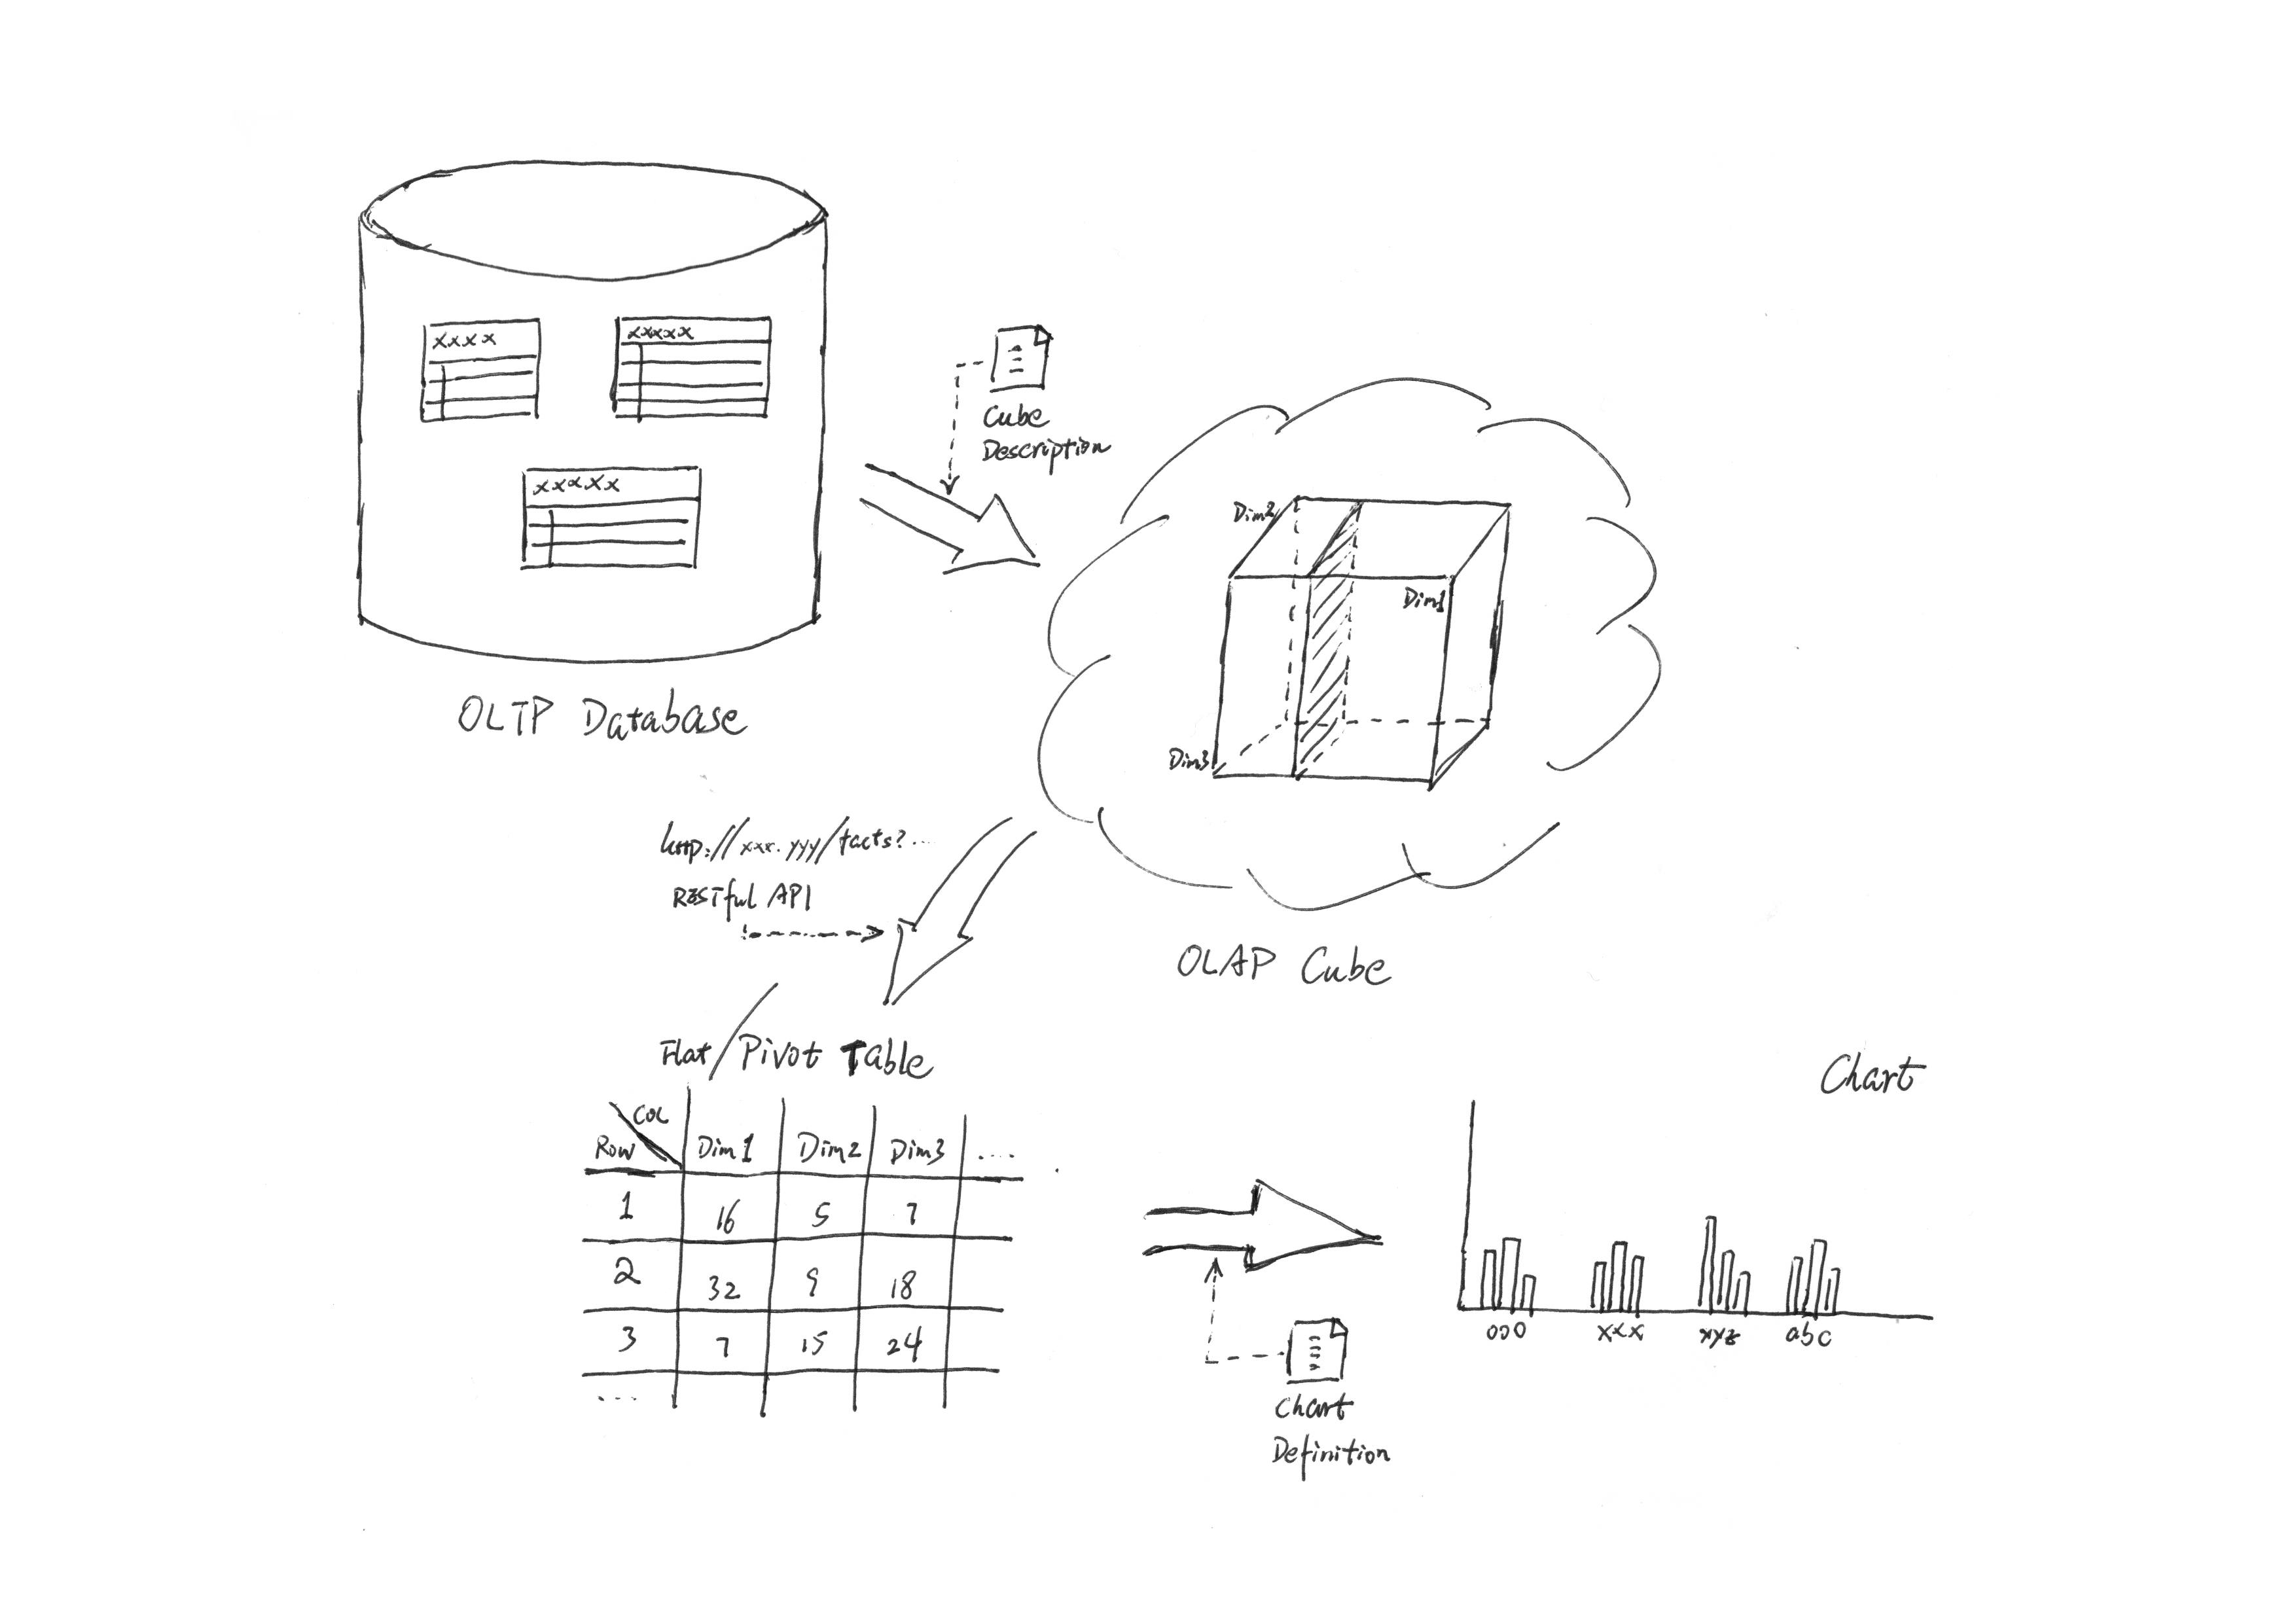 xxxx
xxxxx
xxxxx
Cube
Description
OLTP Database
Dim2
Dim1
Dim3
OLAP Cube
http://xxx.yyy/facts?...
RESTful API
Flat/Pivot Table
COL
Row Dim1 Dim2 Dim3 ....
1 16 5 7
2 32 9 18
3 7 15 24
....
Chart
Definition
Chart
000 xxx xyz abc